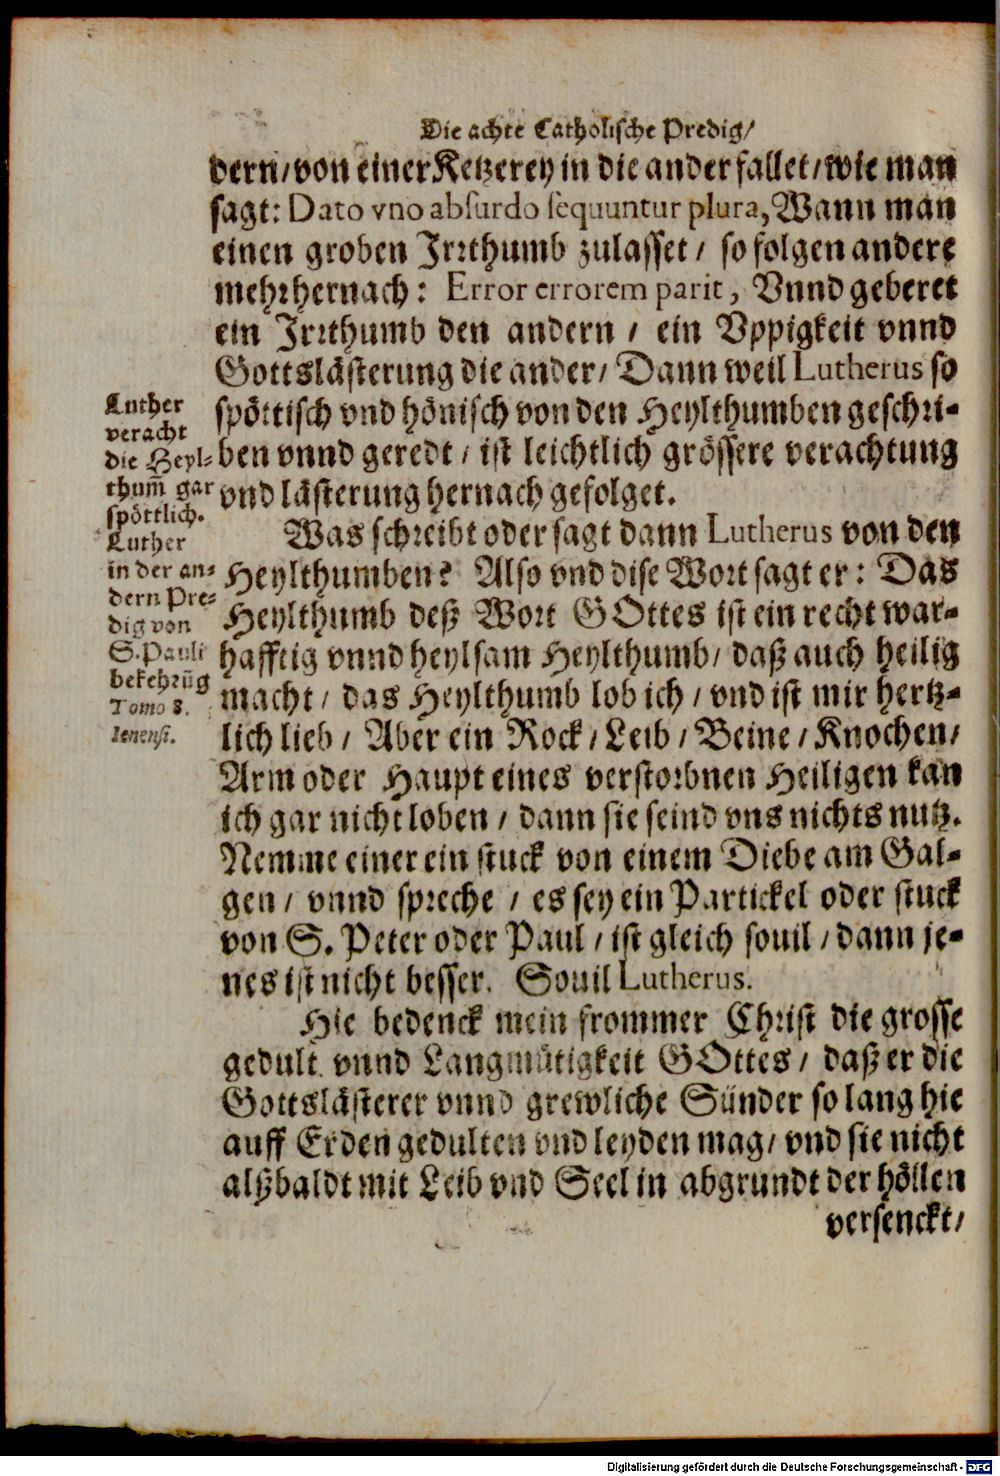 Die achte Catholische Predig/
dern/von einer Ketzerey in die ander fallet/wie man
sagt: Dato vno absurdo sequuntur plura, Wann man
einen groben Irrthumb zulasset/ so folgen andere
mehr hernach: Error errorem parit, Vnnd geberet
ein Irrthumb den andern/ ein Vppigkeit vnnd
Gottslästerung die ander/ Dann weil Lutherus so
spöttisch vnd hönisch von den Heylthumben geschri-
ben vnnd geredt/ ist leichtlich grössere verachtung
vnd lästerung hernach gefolget.
Luther
veracht
die Heyl-
thum̄ gar
spöttlich.
Luther
in der an-
dern Pre-
dig von
S. Pauli
bekehrũg
Tomo 8.
Ienensi.
Was schreibt oder sagt dann Lutherus von den
Heylthumben? Also vnd dise Wort sagt er: Das
Heylthumb deß Wort GOttes ist ein recht war-
hafftig vnnd heylsam Heylthumb/ daß auch heilig
macht/ das Heylthumb lob ich/ vnd ist mir hertz-
lich lieb/ Aber ein Rock/ Leib/ Beine/ Knochen/
Arm oder Haupt eines verstorbnen Heiligen kan
ich gar nicht loben/ dann sie seind vns nichts nutz.
Nemme einer ein stuck von einem Diebe am Gal-
gen/ vnnd spreche/ es sey ein Partickel oder stuck
von S. Peter oder Paul/ ist gleich souil/ dann je-
nes ist nicht besser. Souil Lutherus.
Hie bedenck mein frommer Christ die grosse
gedult vnnd Langmütigkeit GOttes/ daß er die
Gottslästerer vnnd grewliche Sünder so lang hie
auff Erden gedulten vnd leyden mag/ vnd sie nicht
alßbaldt mit Leib vnd Seel in abgrundt der höllen
versenckt/
Digitalisierung gefördert durch die Deutsche Forschungsgemeinschaft - DFG